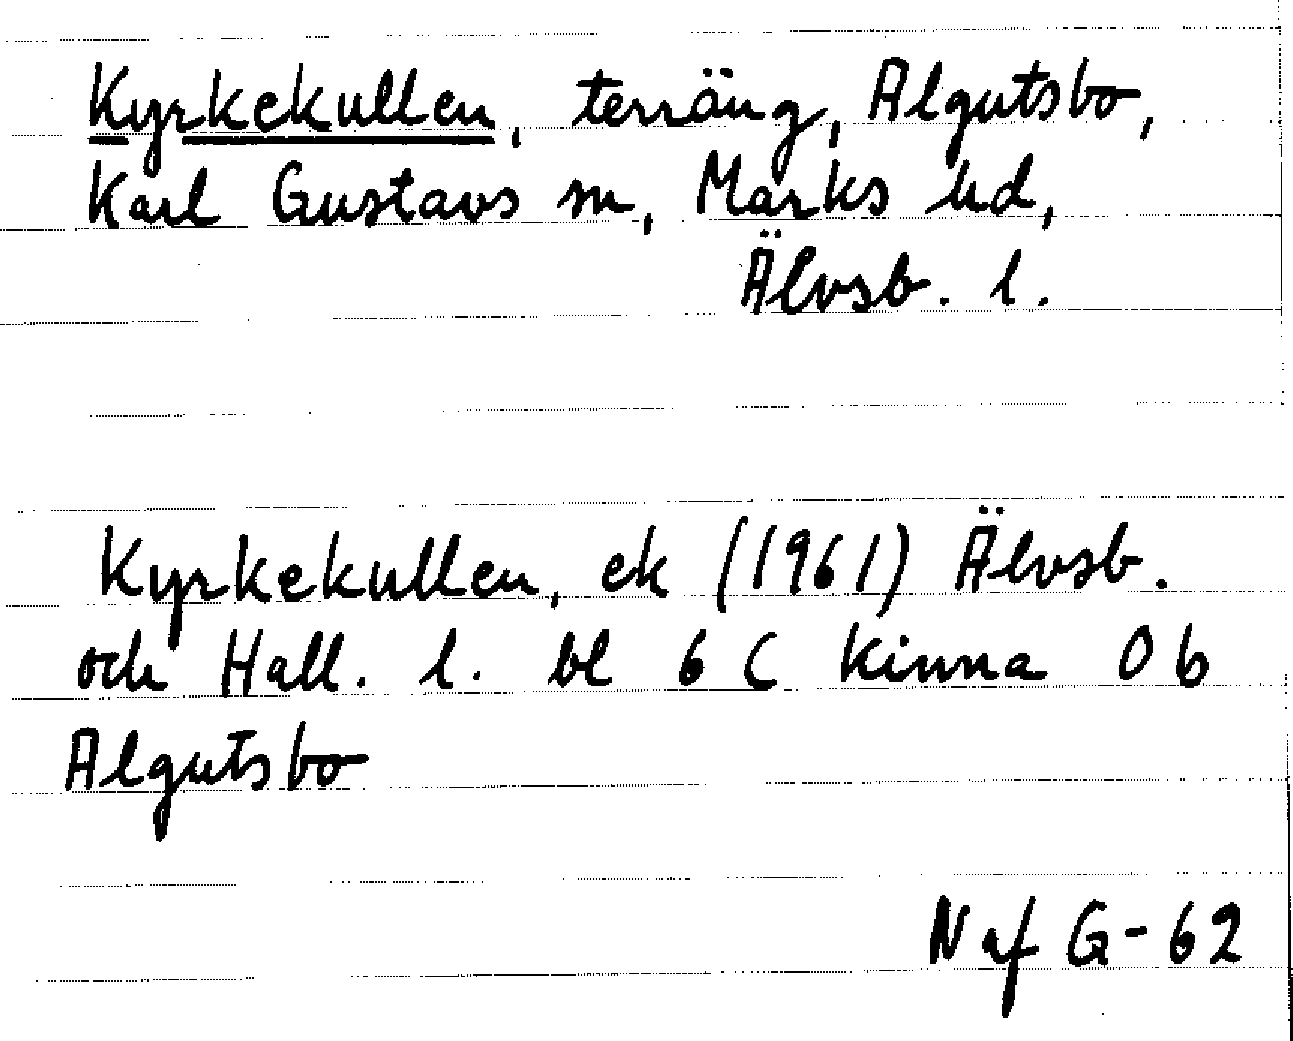 Kyrkekullen, terräng, Algutsbo,
Karl Gustavs sn, Marks hd,
Älvsb. l.
Kyrkekullen, ek (1961) Älvsb.
och Hall. l. bl 6 C Kinna 0 b
Algutsbo
Naf G-62